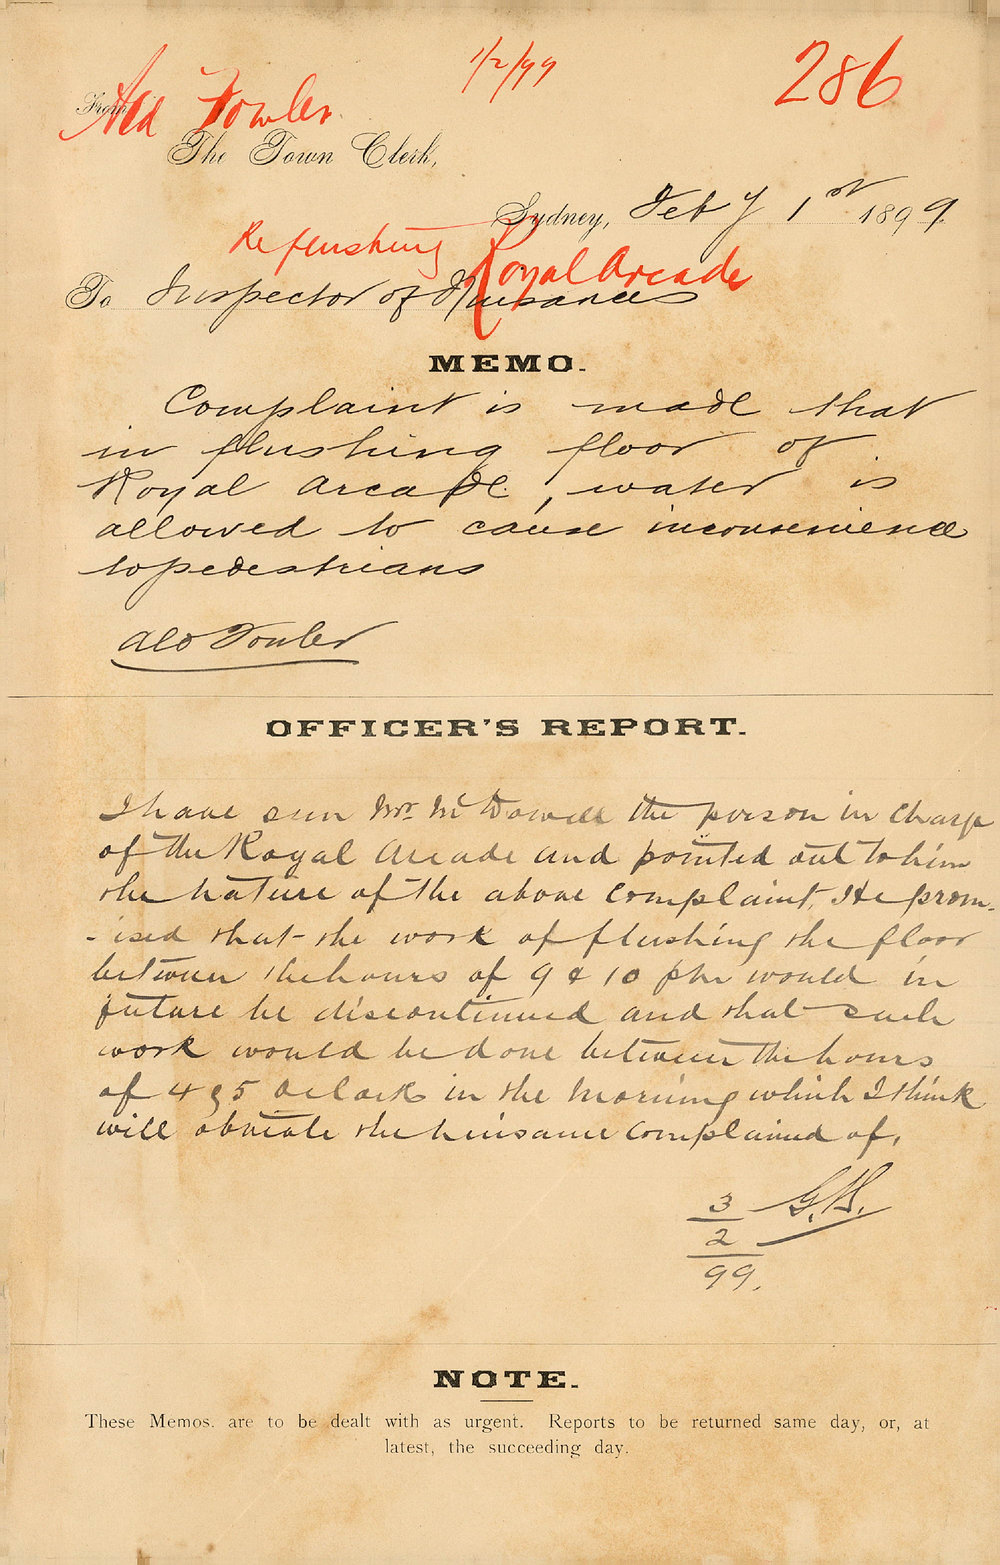 1/2/99
286
From Ald Fowler
The Town Clerk,
Sydney, Feby 1st 1899.
Re flushing Royal Arcade
To Inspector of Nuisances
MEMO.
Complaint is made that
in flushing floor of
Royal Arcade, water is
allowed to cause inconvenience
to pedestrians
Ald Fowler
OFFICER'S REPORT.
I have seen Mr. McDowell the person in charge
of the Royal Arcade and pointed out to him
the nature of the above complaint. He prom-
-ised that the work of flushing the floor
between the hours of 9 & 10 pm would in
future be discontinued and that such
work would be done between the hours
of 4 & 5 Oclock in the morning which I think
will obviate the nuisance complained of.
3 G.B.
2
99.
NOTE.
These Memos. are to be dealt with as urgent. Reports to be returned same day, or, at
latest, the succeeding day.